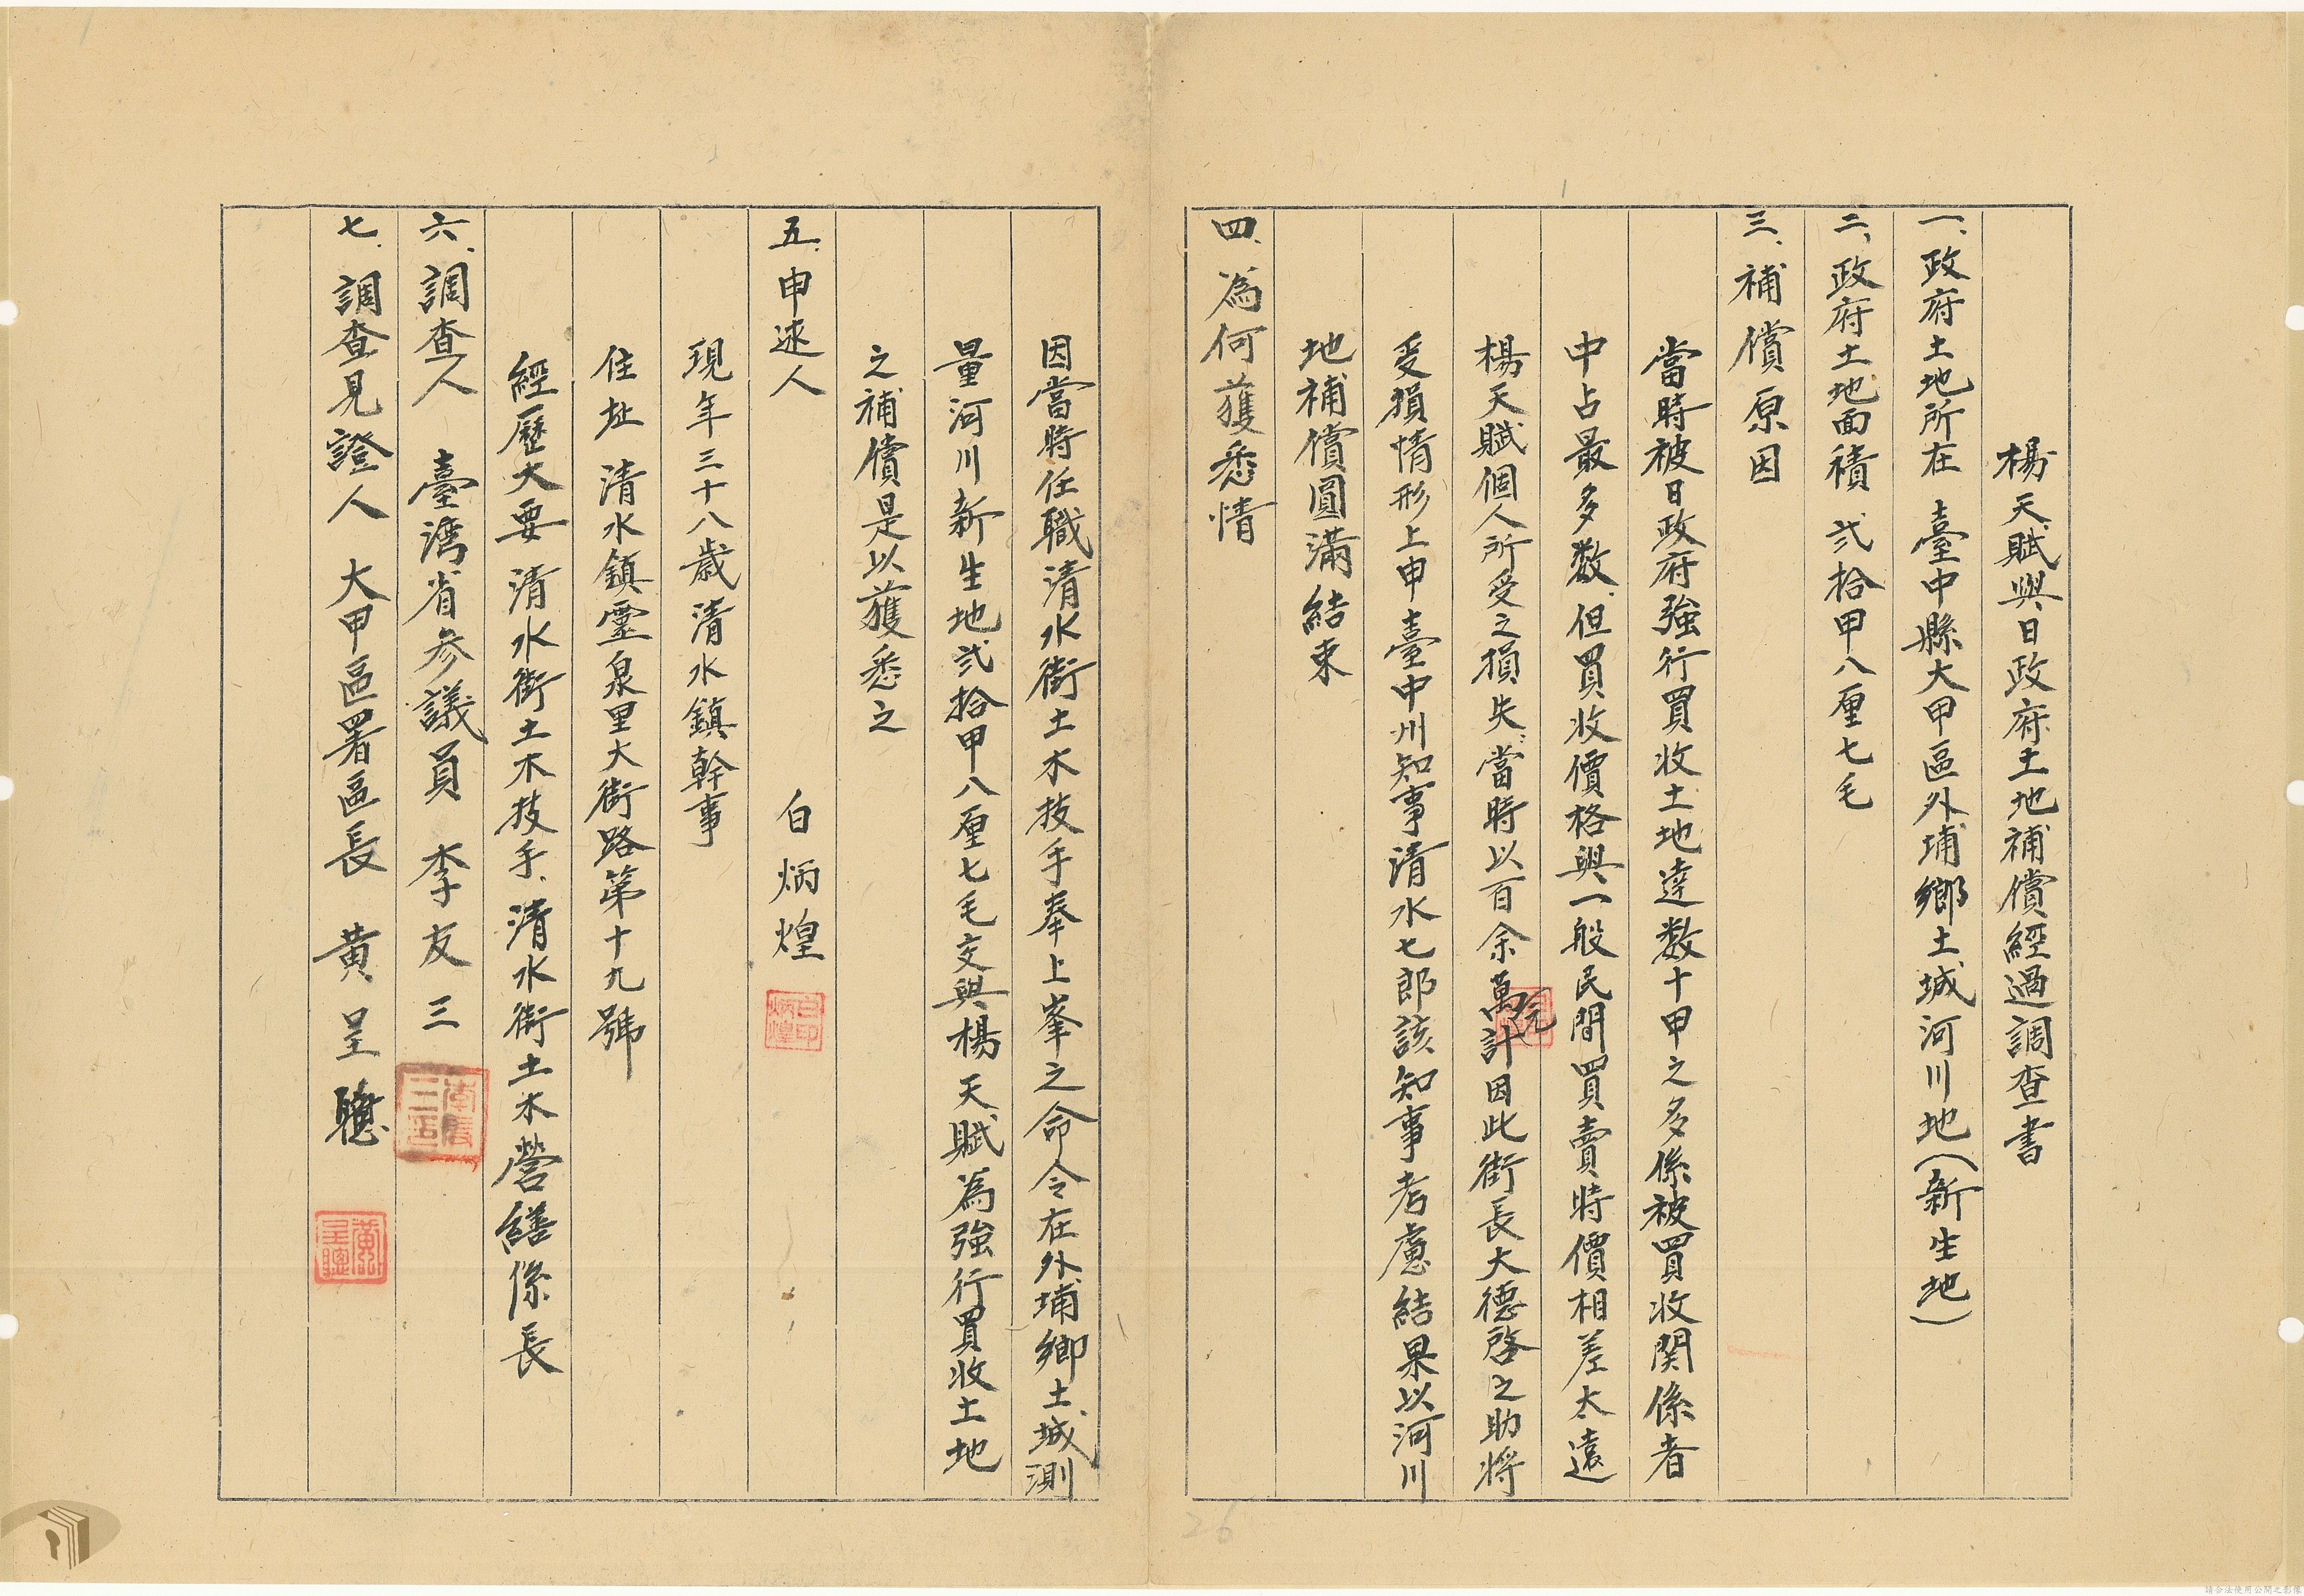 楊天賦與日政府土地補償經過調查書
一、政府土地所在　臺中縣大甲區外埔鄉土城河川地(新生地)
二、政府土地面積　弍拾甲八厘七毛
三、補償原因
當時被日政府強行買收土地達数十甲之多係被買收関係者
中占最多数、但買收價格與一般民間買賣時價相差太遠
楊天賦個人所受之損失、當時以百余萬元計因此街長大德啓之助將
受損情形上申臺中州知事清水七郎該知事考慮結果以河川
地補償圓滿結束
四、為何獲悉情
因當時任職清水街土木技手奉上峯之命令在外埔鄉土城測
量河川新生地弍拾甲八厘七毛交與楊天賦為強行買收土地
之補償是以獲悉之
五、申述人　白炳煌
白炳煌印
現年三十八歲清水鎮幹事
住址　清水鎮靈泉里大街路第十九號
經歷大要　清水街土木技手、清水街土木營繕係長
六、調查人　臺灣省参議員　李友三
李友三
七、調查見證人　大甲區署區長　黄呈聰
黃呈聰
26
請合法使用公開之影像